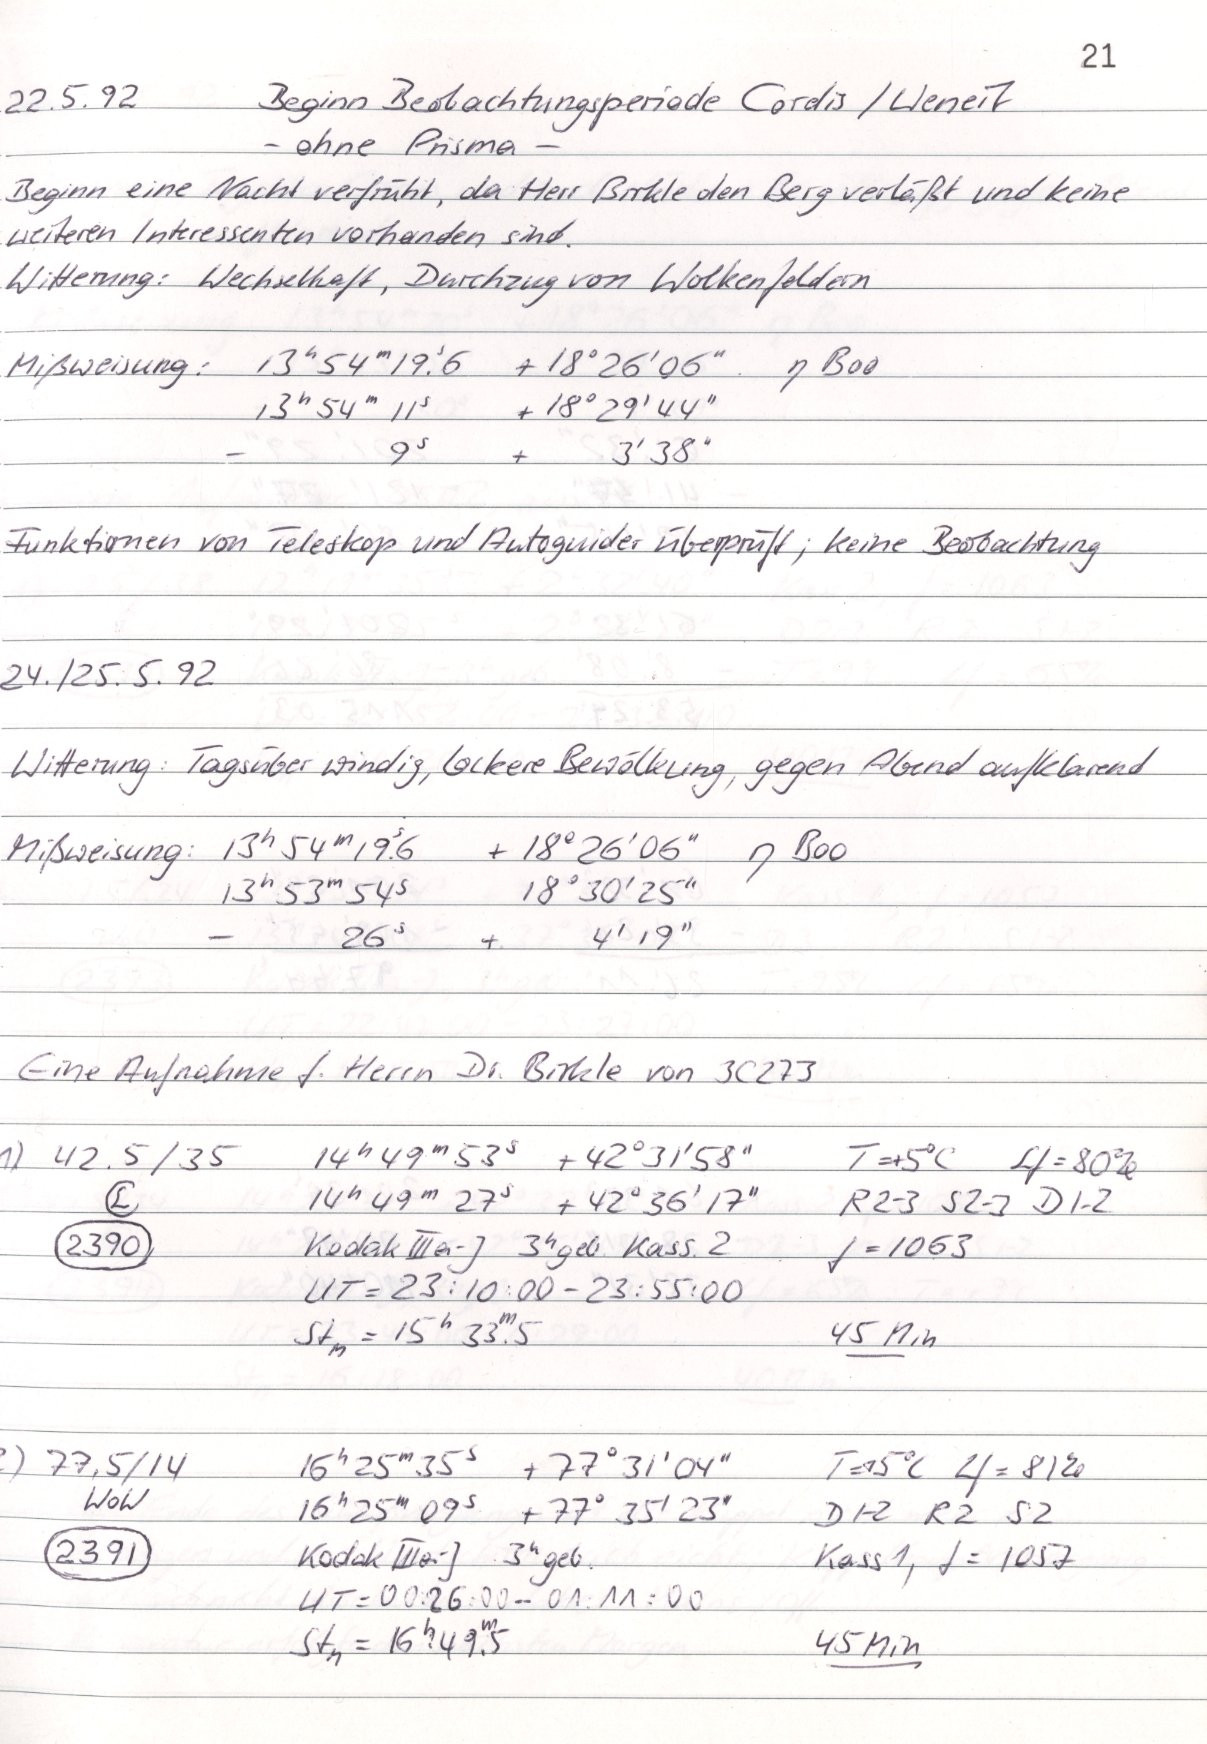 21
22.5.92 Beginn Beobachtungsperiode Cordis /
- ohne Prisma -
Beginn eine Nacht verfrüht, da Herr Birkle den Berg verläßt und keine
weiteren Interessenten vorhanden sind.
Witterung: Wechselhaft, Durchzug von Wolkenfeldern
Mißweisung: 13ʰ54ᵐ19ˢ.6 +18°26'06" η Boo
13ʰ54ᵐ 11ˢ +18°29'44"
- 9ˢ + 3'38"
Funktionen von Teleskop und Autoguider überprüft; keine Beobachtung
24./25.5.92
Witterung: Tagsüber windig, lockere Bewölkung, gegen Abend aufklarend
Mißweisung: 13ʰ54ᵐ19ˢ.6 +18°26'06" η Boo
13ʰ53ᵐ54ˢ 18°30'25"
- 26ˢ + 4'19"
Eine Aufnahme f. Herrn Dr. Birkle von 3C273
1) 42.5/35 14ʰ49ᵐ53ˢ +42°31'58" T=+5°C Lf=80%
14ʰ49ᵐ27ˢ +42°36'17" R2-3 S2-3 D1-2
2390 Kodak IIIa-J 3ʰgeb. Kass. 2 f=1063
UT=23:10:00-23:55:00
Stₘ = 15ʰ33ᵐ.5 45 Min
2) 77.5/14 16ʰ25ᵐ35ˢ +77°31'04" T=+5°C Lf=81%
WoW 16ʰ25ᵐ09ˢ +77°35'23" D1-2 R2 S2
2391 Kodak IIIa-J 3ʰgeb. Kass 1, f=1057
UT=00:26:00-01:11:00
Stₘ = 16ʰ49ᵐ.5 45 Min